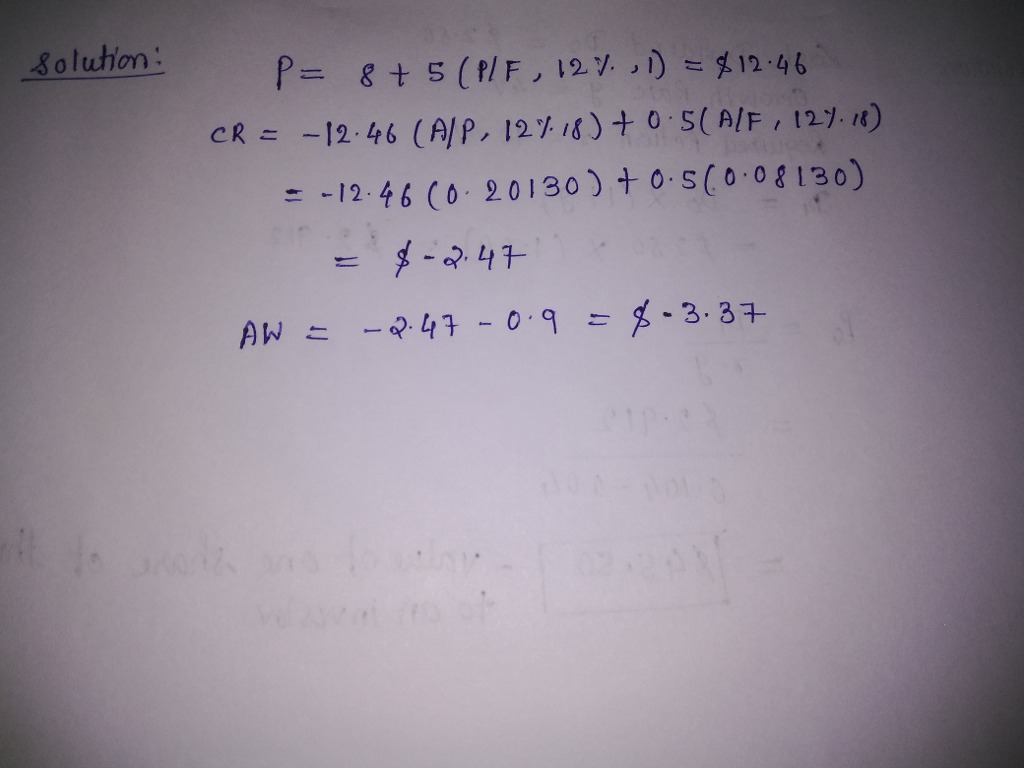 Solution:
P = 8 + 5 (P/F, 12%, 1) = $12.46
CR = -12.46 (A/P, 12%, 18) + 0.5 (A/F, 12%, 18)
= -12.46 (0.20130) + 0.5 (0.08130)
= $-2.47
AW = -2.47 - 0.9 = $-3.37